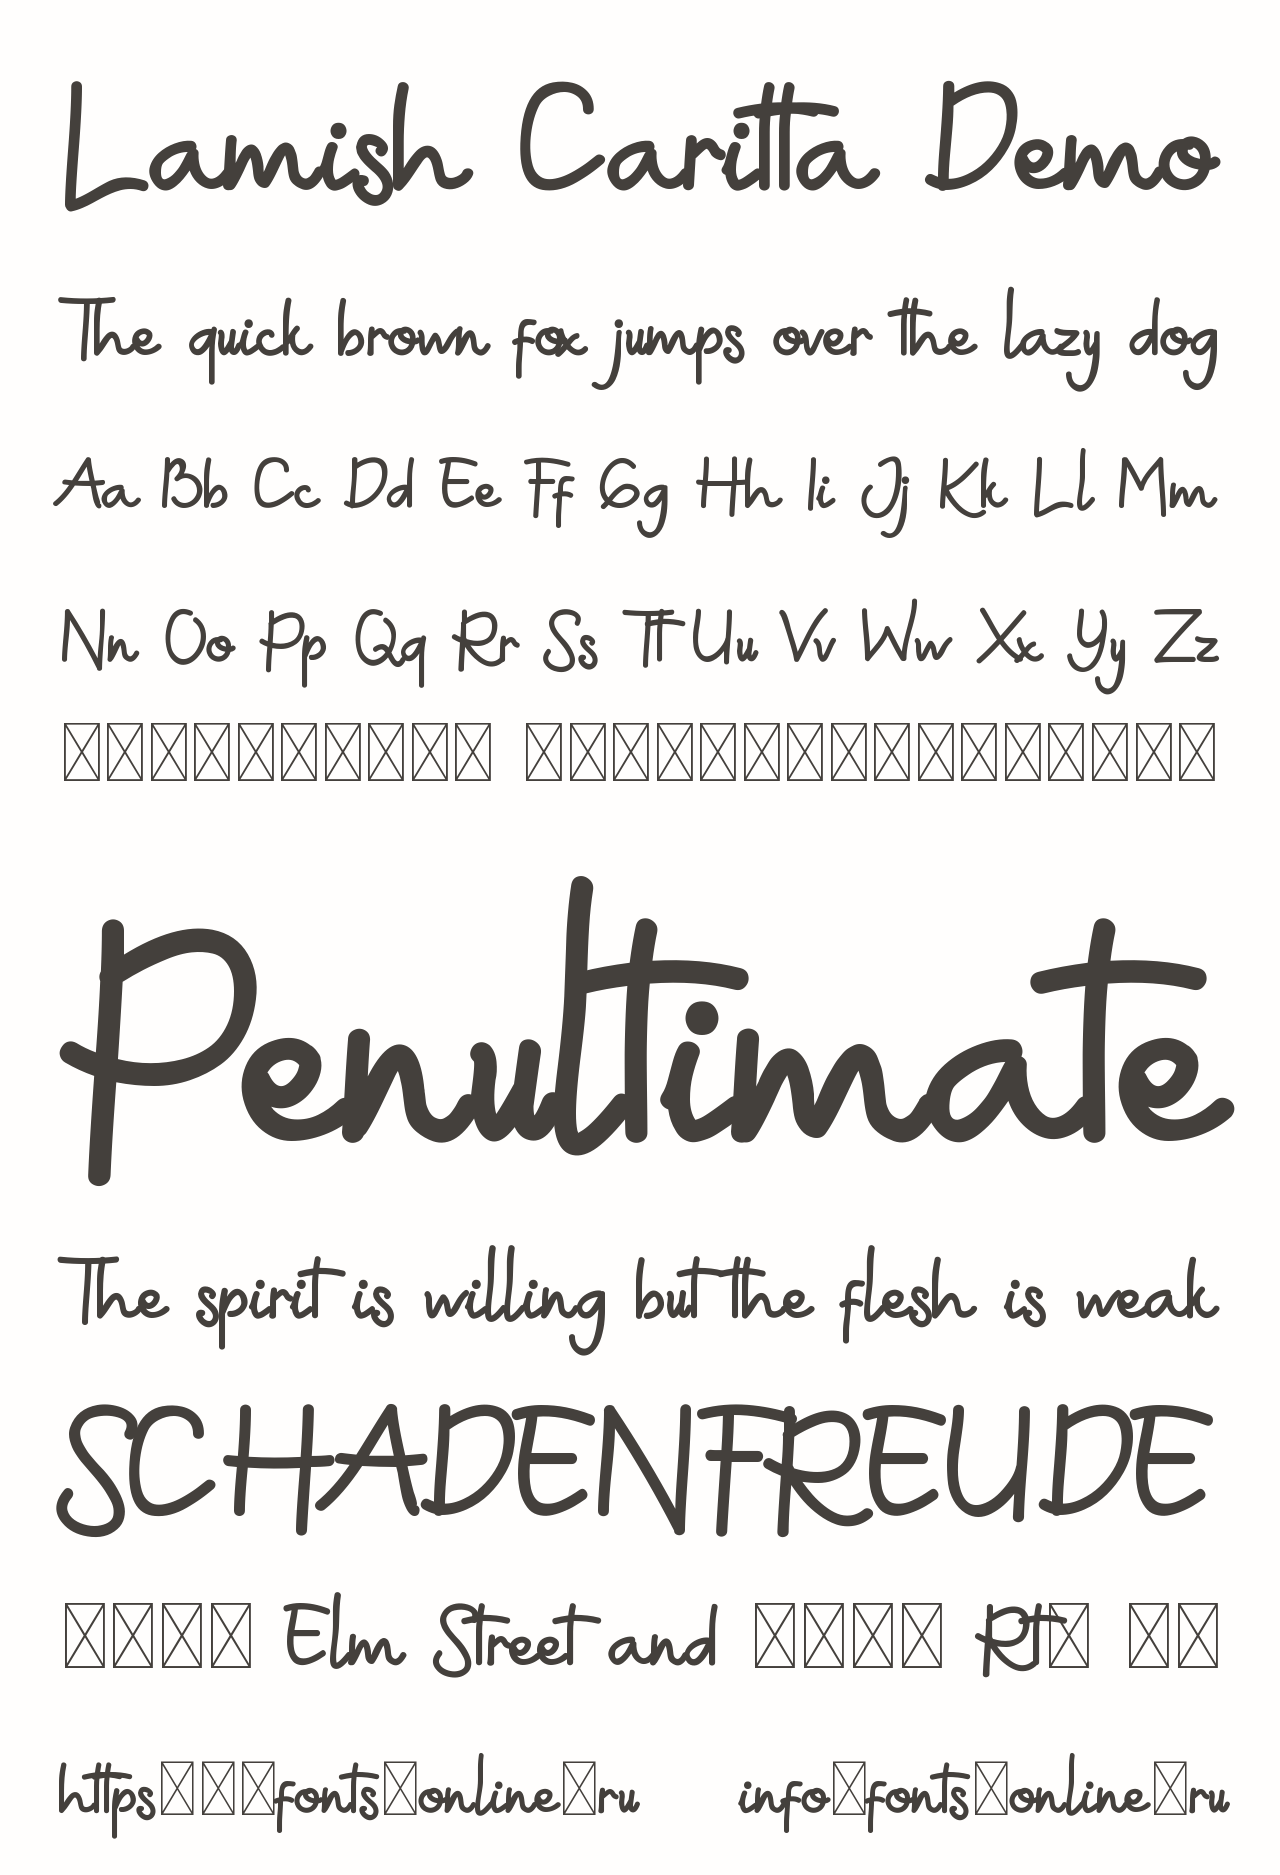 Lamish Caritta Demo
The quick brown fox jumps over the lazy dog
Aa Bb Cc Dd Ee Ff Gg Hh Ii Jj Kk Ll Mm
Nn Oo Pp Qq Rr Ss Tt Uu Vv Ww Xx Yy Zz
Penultimate
The spirit is willing but the flesh is weak
SCHADENFREUDE
Elm Street and Rt
https fonts online ru info fonts online ru